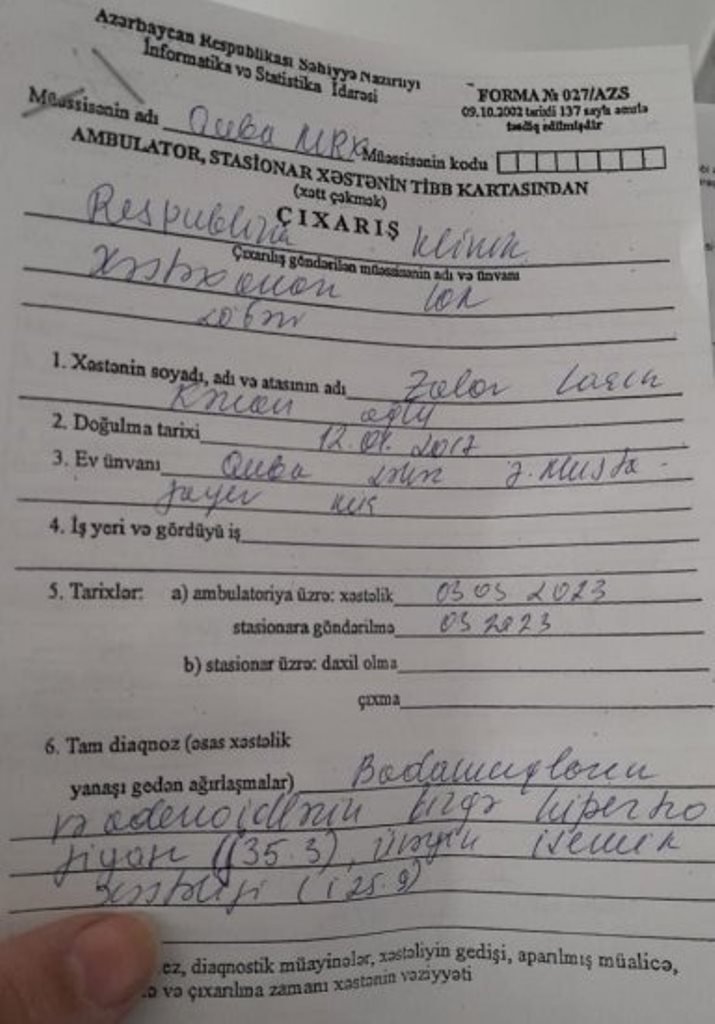 Azərbaycan Respublikası Səhiyyə Nazirliyi
İnformatika və Statistika İdarəsi
FORMA № 027/AZS
09.10.2002 tarixli 137 saylı əmrlə
təsdiq edilmişdir
Müəssisənin adı Quba MRX Müəssisənin kodu
AMBULATOR, STASİONAR XƏSTƏNİN TİBB KARTASINDAN
(xətt çəkmək)
ÇIXARIŞ
Respublika klinik
Çıxarılış göndərilən müəssisənin adı və ünvanı
xəstəxanan lor
1. Xəstənin soyadı, adı və atasının adı
oğlu
2. Doğulma tarixi
3. Ev ünvanı Quba Musta-
4. İş yeri və gördüyü iş
5. Tarixlər: a) ambulatoriya üzrə: xəstəlik 03 05 2023
stasionara göndərilmə 05 2023
b) stasionar üzrə: daxil olma
çıxma
6. Tam diaqnoz (əsas xəstəlik
yanaşı gedən ağırlaşmalar) Badamcıqların
və adenoidlərin birgə hipertro
fiyası (J35.3), ürəyin işemik
xəstəliyi (i 25.9)
ez, diaqnostik müayinələr, xəstəliyin gedişi, aparılmış müalicə,
və çıxarılma zamanı xəstənin vəziyyəti